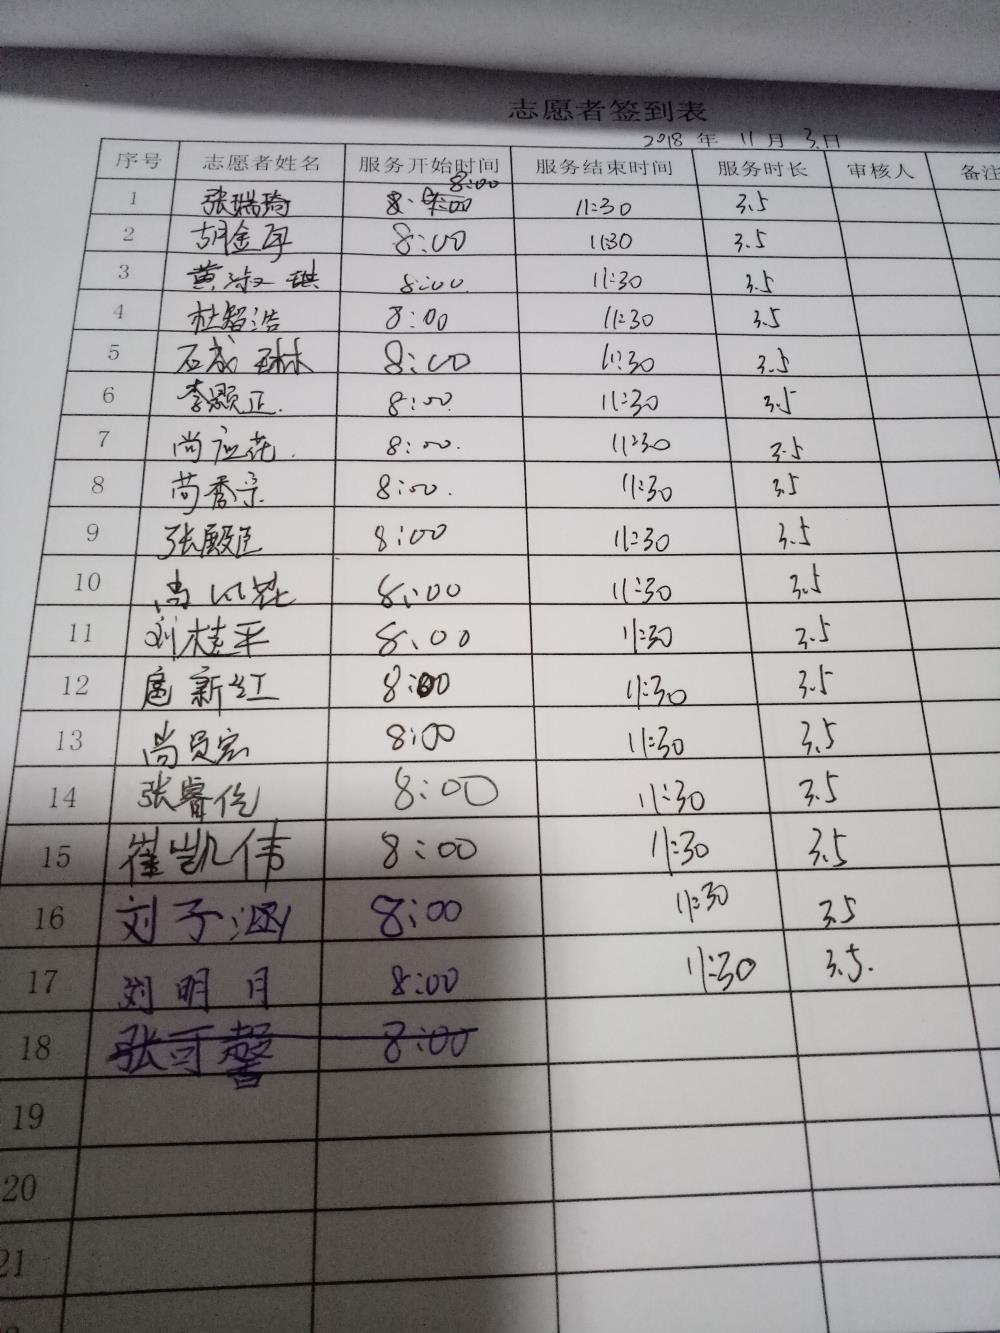 志愿者签到表
2018 年 11 月 3 日
序号 志愿者姓名 服务开始时间 服务结束时间 服务时长 审核人 备注
1 张瑞琦 8:00 11:30 3.5
2 胡金 8:00 1130 3.5
3 黄淑琪 8:00 11:30 3.5
4 杜智浩 8:00 11:30 3.5
5 石成琳 8:00 11:30 3.5
6 李颢正 8:00 11:30 3.5
7 尚应花 8:00 11:30 3.5
8 8:00 11:30 3.5
9 张殿 8:00 11:30 3.5
10 尚 8:00 11:30 3.5
11 刘桂平 8:00 11:30 3.5
12 新红 8:00 11:30 3.5
13 尚 8:00 11:30 3.5
14 张睿 8:00 11:30 3.5
15 崔凯伟 8:00 11:30 3.5
16 刘子涵 8:00 11:30 3.5
17 刘明月 8:00 11:30 3.5.
18 张可馨 8:00
19
20
21